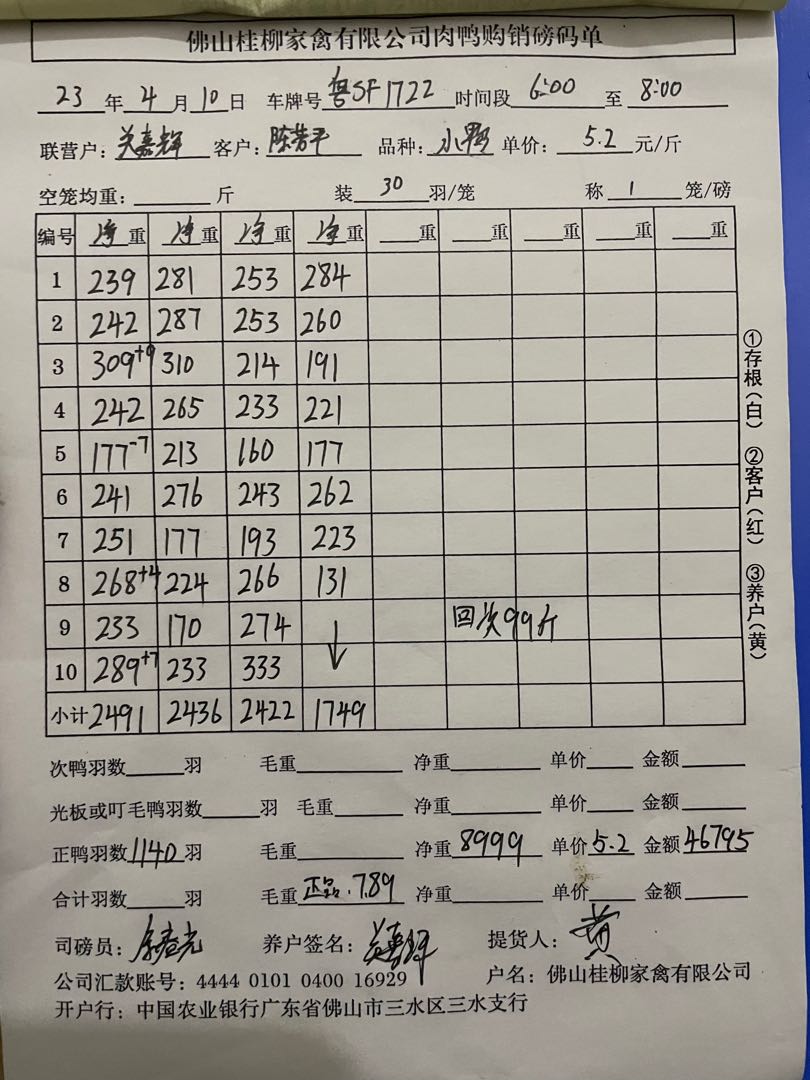 佛山桂柳家禽有限公司肉鸭购销磅码单
23 年 4 月 10 日 车牌号 粤SF1722 时间段 6:00 至 8:00
联营户: 关嘉辉 客户: 陈芳平 品种: 小 单价: 5.2 元/斤
空笼均重: 斤 装 30 羽/笼 称 1 笼/磅
编号 净重 净重 净重 净重 重 重 重 重 重
1 239 281 253 284
2 242 287 253 260
3 309+9 310 214 191
4 242 265 233 221
5 177-7 213 160 177
6 241 276 243 262
7 251 177 193 223
8 268+4 224 266 131
9 233 170 274 ↓ 回次99斤
10 289+7 233 333
小计 2491 2436 2422 1749
①存根(白) ②客户(红) ③养户(黄)
次鸭羽数 羽 毛重 净重 单价 金额
光板或叮毛鸭羽数 羽 毛重 净重 单价 金额
正鸭羽数 1140 羽 毛重 净重 8999 单价 5.2 金额 46795
合计羽数 羽 毛重 正品.7.89 净重 单价 金额
司磅员: 养户签名: 关嘉辉 提货人: 黄
公司汇款账号: 4444 0101 0400 16929 户名: 佛山桂柳家禽有限公司
开户行: 中国农业银行广东省佛山市三水区三水支行